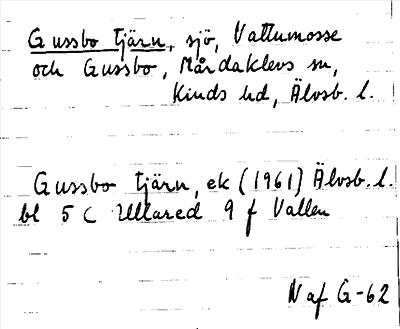 Gussbo tjärn, sjö, Vattumosse
och Gussbo, Mårdaklevs sn,
Kinds hd, Älvsb. l.
Gussbo tjärn, ek (1961) Älvsb. l.
bl 5 C Ullared 9 f Vallen
N af G-62